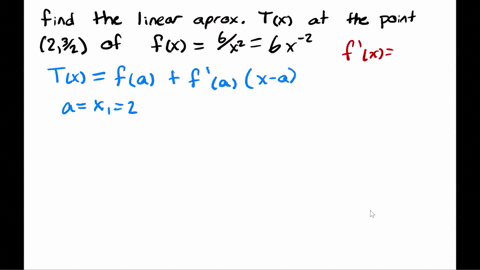 find the linear aprox. T(x) at the point
(2,3/2) of f(x) = 6/x² = 6x⁻² f'(x)=
T(x) = f(a) + f'(a) (x-a)
a = x₁ = 2